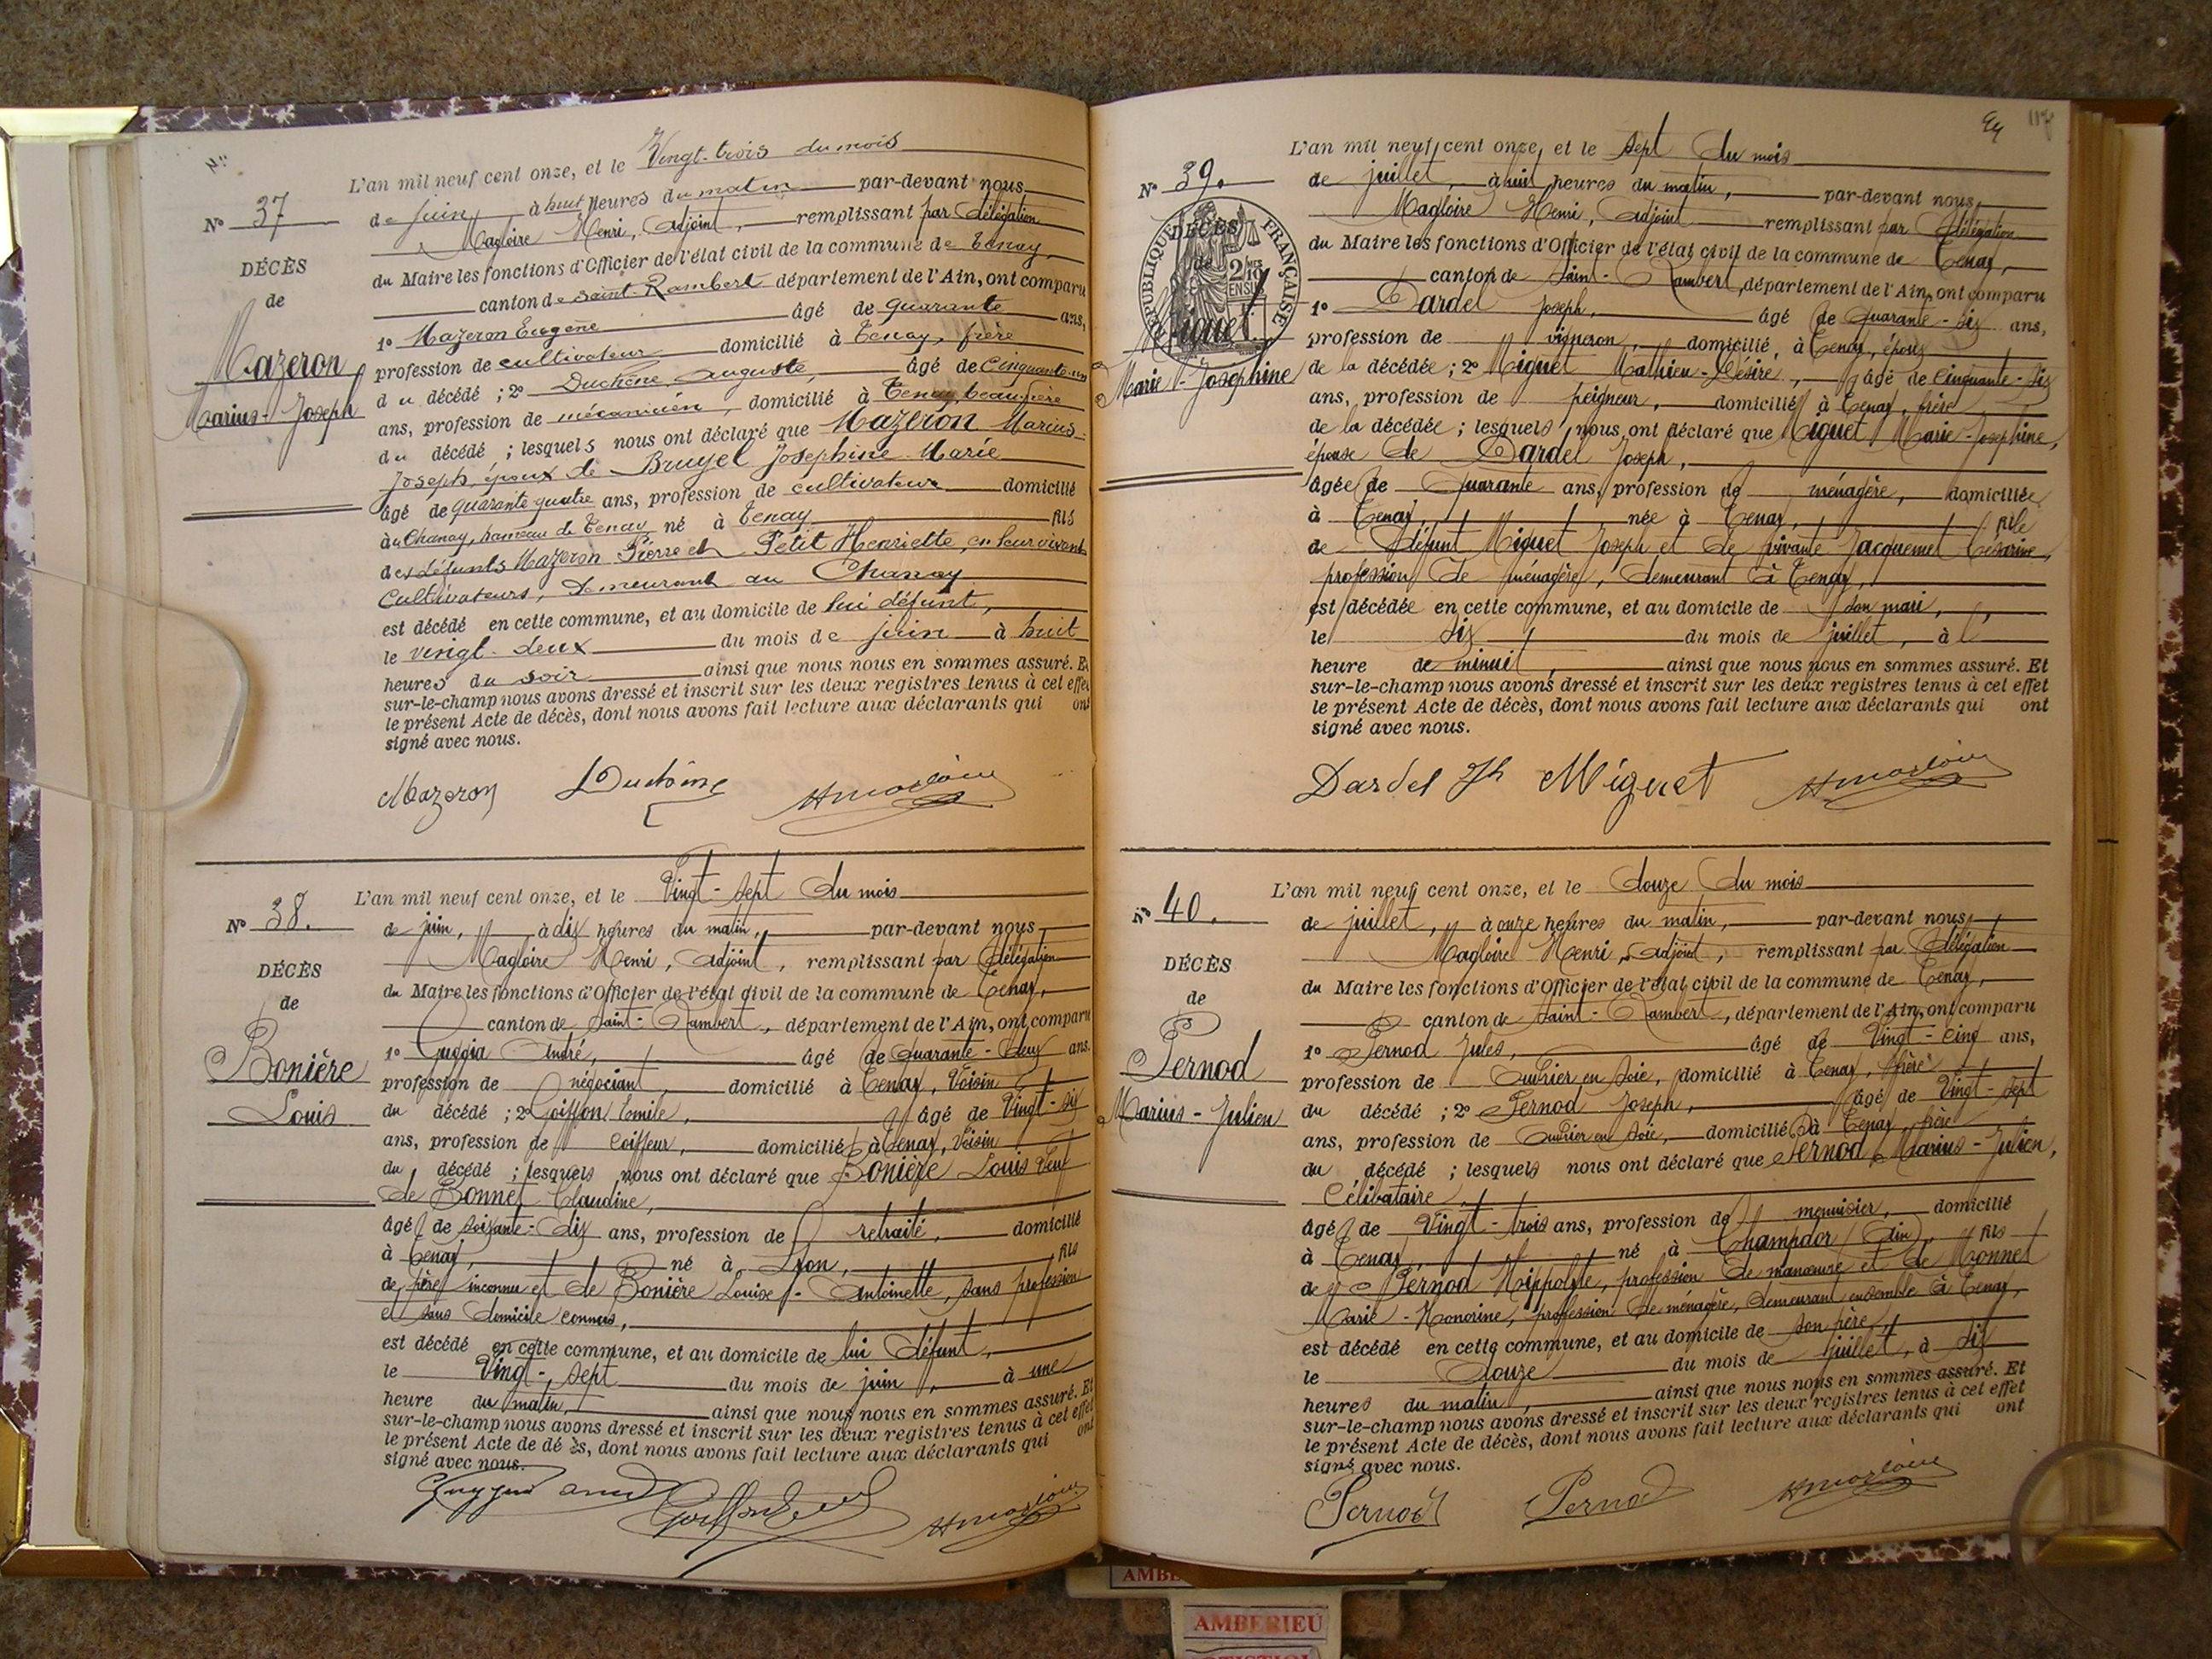 N° 37
DÉCÈS
de
Mazeron
Marius-Joseph
L'an mil neuf cent onze, et le Vingt-trois du mois
de juin à huit heures du matin par-devant nous
Magloire Henri, adjoint, remplissant par délégation
du Maire les fonctions d'Officier de l'état civil de la commune de Tenay,
canton de Saint-Rambert département de l'Ain, ont comparu
1° Mazeron Eugène âgé de quarante ans,
profession de cultivateur domicilié à Tenay, frère
du décédé ; 2° Duchêne Auguste, âgé de Cinquante-un
ans, profession de mécanicien, domicilié à Tenay, beau frère
du décédé ; lesquels nous ont déclaré que Mazeron Marius-
Joseph, époux de Bruyel Josephine Marie
âgé de quarante quatre ans, profession de cultivateur domicilié
au Chanay, hameau de Tenay né à Tenay fils
des défunts Mazeron Pierre et Petit Henriette, en leur vivant
Cultivateurs, demeurant au Chanay
est décédé en cette commune, et au domicile de lui défunt,
le vingt-deux du mois de juin à huit
heures du soir ainsi que nous nous en sommes assuré. Et
sur-le-champ nous avons dressé et inscrit sur les deux registres tenus à cet effet
le présent Acte de décès, dont nous avons fait lecture aux déclarants qui ont
signé avec nous.
Mazeron Duchêne HMagloire
N° 38.
DÉCÈS
de
Bonière
Louis
L'an mil neuf cent onze, et le Vingt-sept du mois
de juin, à dix heures du matin, par-devant nous
Magloire Henri, adjoint, remplissant par délégation
du Maire les fonctions d'Officier de l'état civil de la commune de Tenay,
canton de Saint-Rambert, département de l'Ain, ont comparu
1° Guggia André, âgé de Quarante-deux ans.
profession de négociant, domicilié à Tenay, Voisin
du décédé ; 2° Goiffon Emile, âgé de Vingt-six
ans, profession de coiffeur, domicilié à Tenay, Voisin
du décédé ; lesquels nous ont déclaré que Bonière Louis Veuf
de Bonnet Claudine,
âgé de soixante-dix ans, profession de retraité, domicilié
à Tenay, né à Lyon, fils
de père inconnu et de Bonière Louise-Antoinette, sans profession
et sans domicile connus,
est décédé en cette commune, et au domicile de lui défunt,
le Vingt-sept du mois de juin, à une
heure du matin, ainsi que nous nous en sommes assuré. Et
sur-le-champ nous avons dressé et inscrit sur les deux registres tenus à cet effet
le présent Acte de décès, dont nous avons fait lecture aux déclarants qui ont
signé avec nous.
HMagloire
117
N° 39.
DÉCÈS
de
Miguet
Marie-Josephine
RÉPUBLIQUE FRANÇAISE
L'an mil neuf cent onze, et le sept du mois
de juillet, à huit heures du matin, par-devant nous
Magloire Henri, adjoint remplissant par délégation
du Maire les fonctions d'Officier de l'état civil de la commune de Tenay,
canton de Saint-Rambert, département de l'Ain, ont comparu
1° Dardel Joseph, âgé de Quarante-six ans,
profession de vigneron, domicilié à Tenay, époux
de la décédée ; 2° Miguet Mathieu-Désiré, âgé de Cinquante-six
ans, profession de peigneur, domicilié à Tenay, frère
de la décédée ; lesquels nous ont déclaré que Miguet Marie-Josephine,
épouse de Dardel Joseph,
âgée de Quarante ans, profession de ménagère, domiciliée
à Tenay, née à Tenay, fille
de défunt Miguet Joseph et de vivante Jacquemet Césarine,
profession de ménagère, demeurant à Tenay,
est décédée en cette commune, et au domicile de son mari,
le six du mois de juillet, à l
heure de minuit, ainsi que nous nous en sommes assuré. Et
sur-le-champ nous avons dressé et inscrit sur les deux registres tenus à cet effet
le présent Acte de décès, dont nous avons fait lecture aux déclarants qui ont
signé avec nous.
Dardel Jh Miguet HMagloire
N° 40.
DÉCÈS
de
Pernod
Marius-Julien
L'an mil neuf cent onze, et le douze du mois
de juillet, à onze heures du matin, par-devant nous
Magloire Henri, adjoint, remplissant par délégation
du Maire les fonctions d'Officier de l'état civil de la commune de Tenay,
canton de Saint-Rambert, département de l'Ain, ont comparu
1° Pernod Jules, âgé de Vingt-cinq ans,
profession de Ouvrier en soie, domicilié à Tenay, frère
du décédé ; 2° Pernod Joseph, âgé de Vingt-sept
ans, profession de Ouvrier en soie, domicilié à Tenay, frère
du décédé ; lesquels nous ont déclaré que Pernod Marius-Julien,
Célibataire,
âgé de Vingt-trois ans, profession de menuisier, domicilié
à Tenay, né à Champdor (Ain), fils
de Pernod Hippolyte, profession de manœuvre et de Monnet
Marie-Honorine, profession de ménagère, demeurant ensemble à Tenay,
est décédé en cette commune, et au domicile de son père,
le douze du mois de juillet, à dix
heures du matin, ainsi que nous nous en sommes assuré. Et
sur-le-champ nous avons dressé et inscrit sur les deux registres tenus à cet effet
le présent Acte de décès, dont nous avons fait lecture aux déclarants qui ont
signé avec nous.
Pernod Pernod HMagloire
AMBERIEU